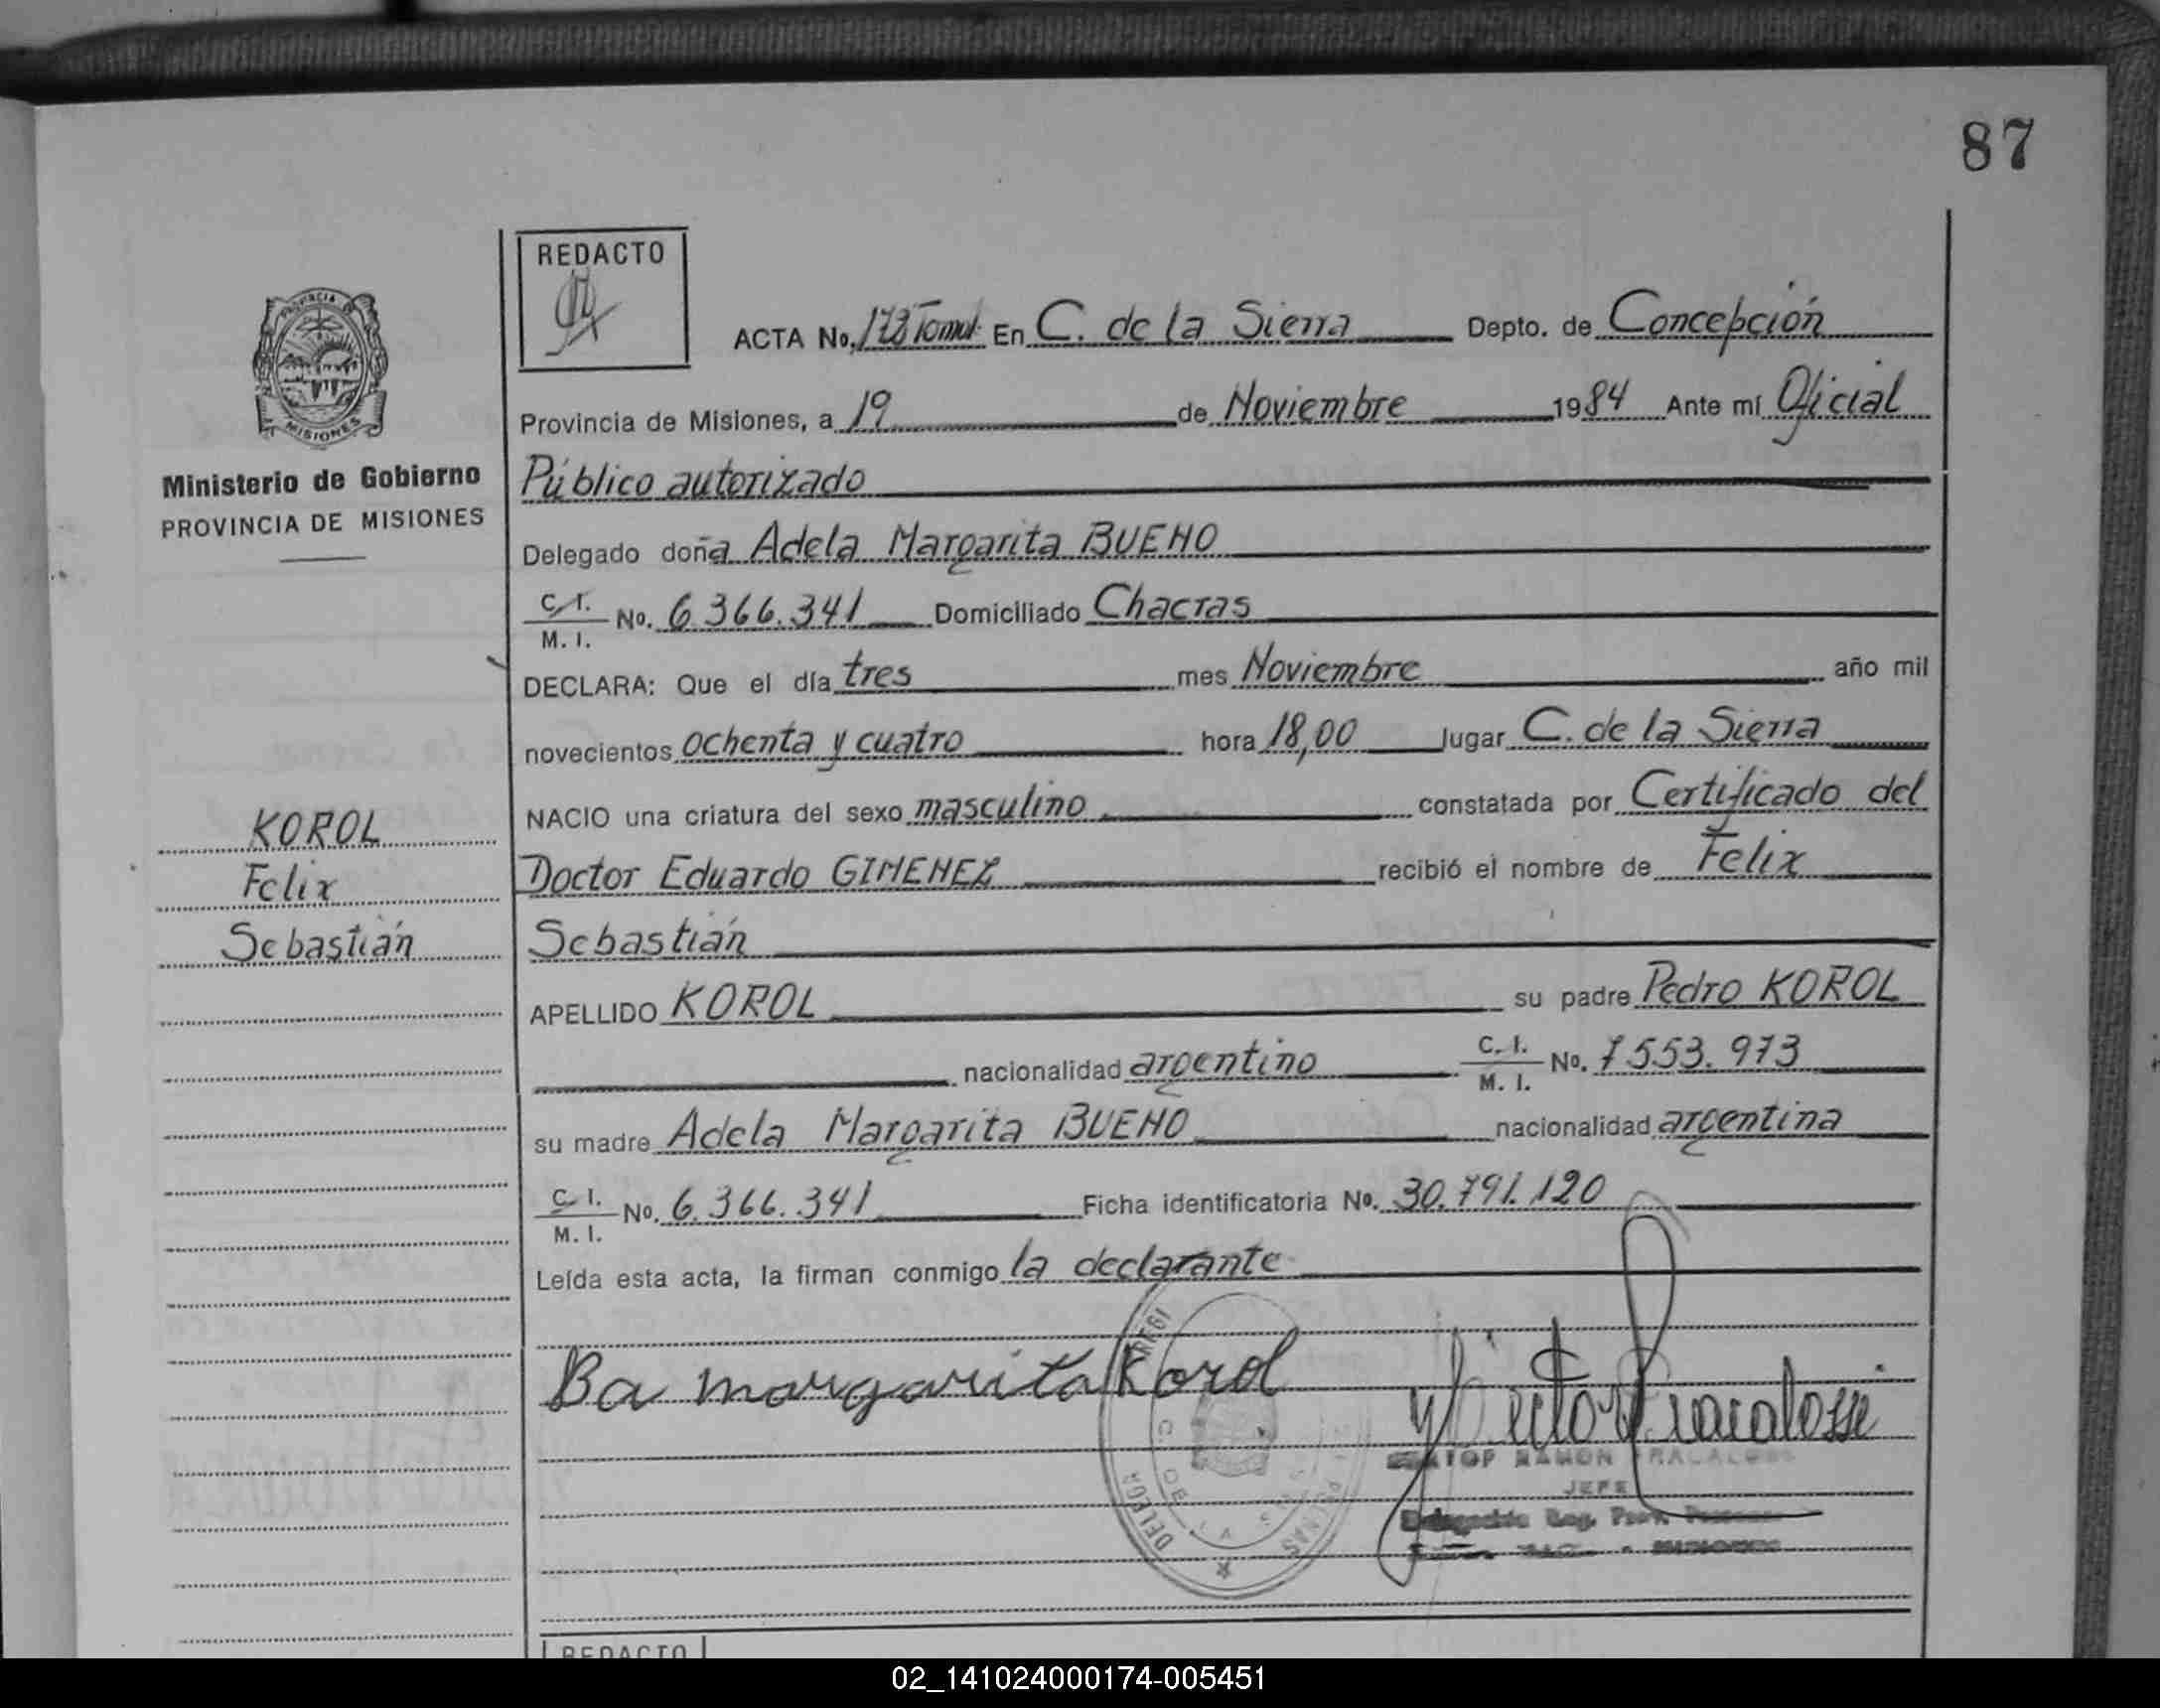 87
REDACTO
ACTA No. 173 Tomo I. En C. de la Sierra Depto. de Concepción
Provincia de Misiones, a 19 de Noviembre 1984 Ante mí Oficial
Público autorizado
Delegado doña Adela Margarita BUENO
C. I. / M. I. No. 6.366.341 Domiciliado Chacras
DECLARA: Que el día tres mes Noviembre año mil
novecientos ochenta y cuatro hora 18,00 lugar C. de la Sierra
NACIO una criatura del sexo masculino constatada por Certificado del
Doctor Eduardo GIMENEZ recibió el nombre de Felix
Sebastián
APELLIDO KOROL su padre Pedro KOROL
nacionalidad argentino C. I. / M. I. No. 7553.973
su madre Adela Margarita BUENO nacionalidad argentina
C. I. / M. I. No. 6.366.341 Ficha identificatoria No. 30.791.120
Leída esta acta, la firman conmigo la declarante
Ba margarita Korol
RAMON
JEFE
PROVINCIA DE
MISIONES
Ministerio de Gobierno
PROVINCIA DE MISIONES
KOROL
Felix
Sebastián
REDACTO
02_141024000174-005451